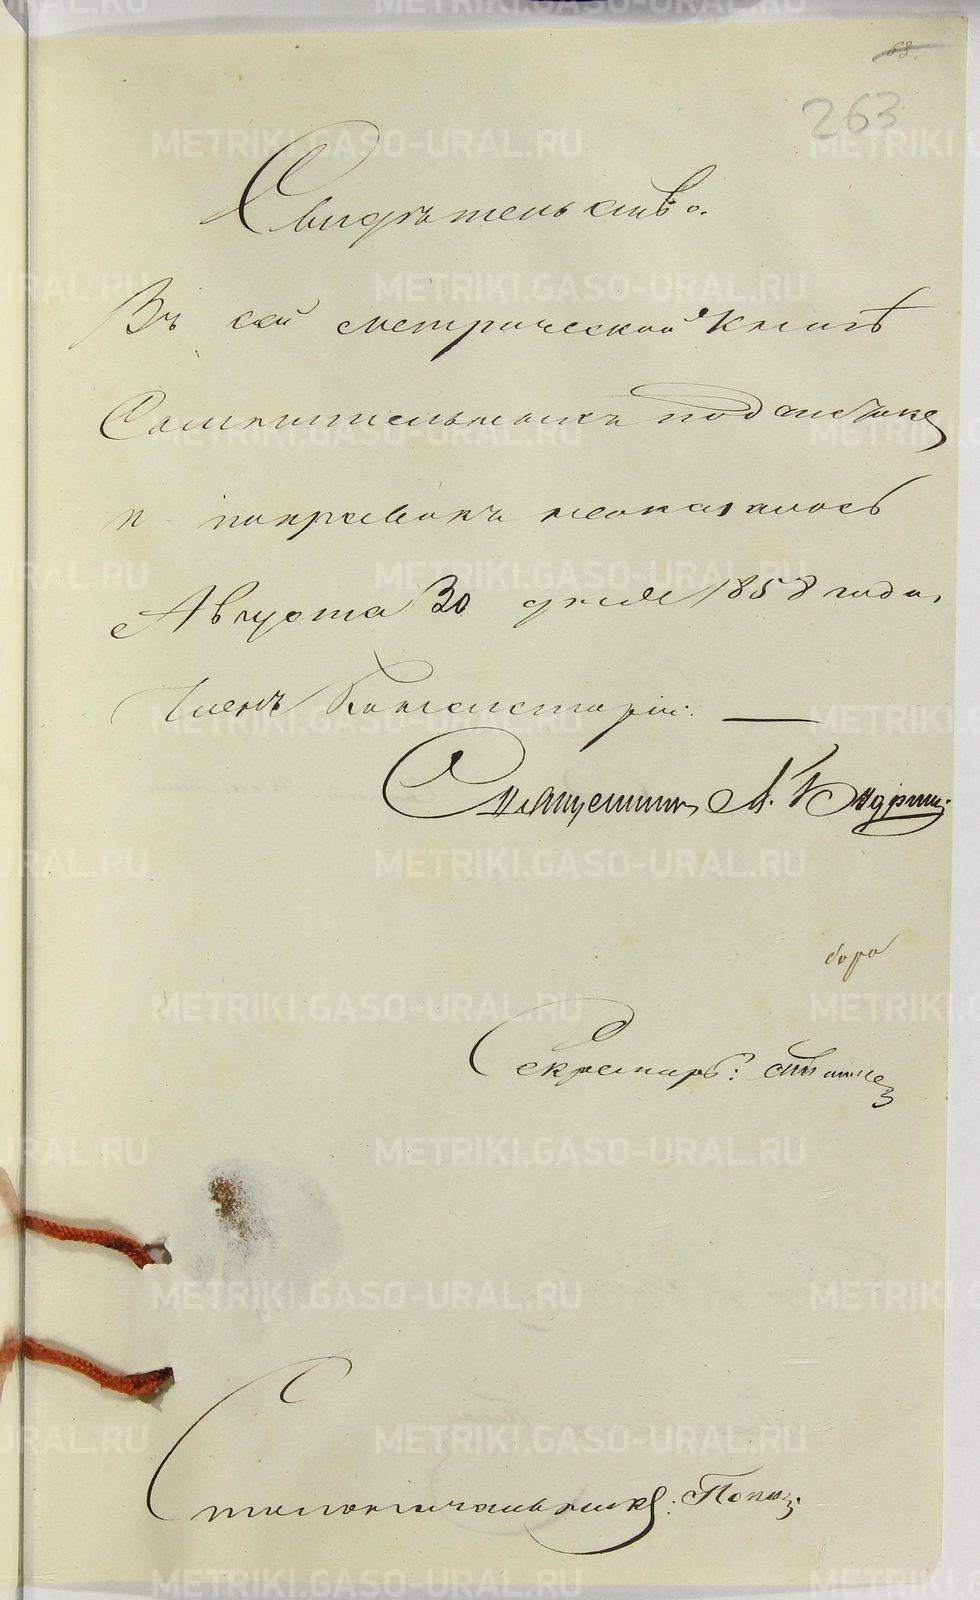 68.
263
Свидѣтельство.
Въ сей метрической Книгѣ
Сомнительныхъ подчистокъ
и поправокъ неоказалось
Августа 30 дня 1858 года.
Членъ Консисторіи:
Священникъ А.
Секретарь:
Столоначальникъ: Поповъ
METRIKI.GASO-URAL.RU